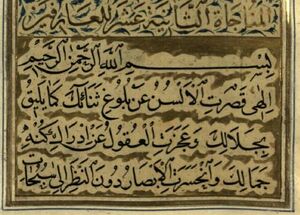 المناجاة الثانية عشر للعارفين
بِسْمِ اللَّهِ الرَّحْمٰنِ الرَّحِيمِ
إِلٰهِي قَصُرَتِ الْأَلْسُنُ عَنْ بُلُوغِ ثَنَائِكَ كَمَا يَلِيقُ
بِجَلَالِكَ وَعَجَزَتِ الْعُقُولُ عَنْ إِدْرَاكِ كُنْهِ
جَمَالِكَ وَانْحَسَرَتِ الْأَبْصَارُ دُونَ النَّظَرِ إِلَى سُبُحَاتِ